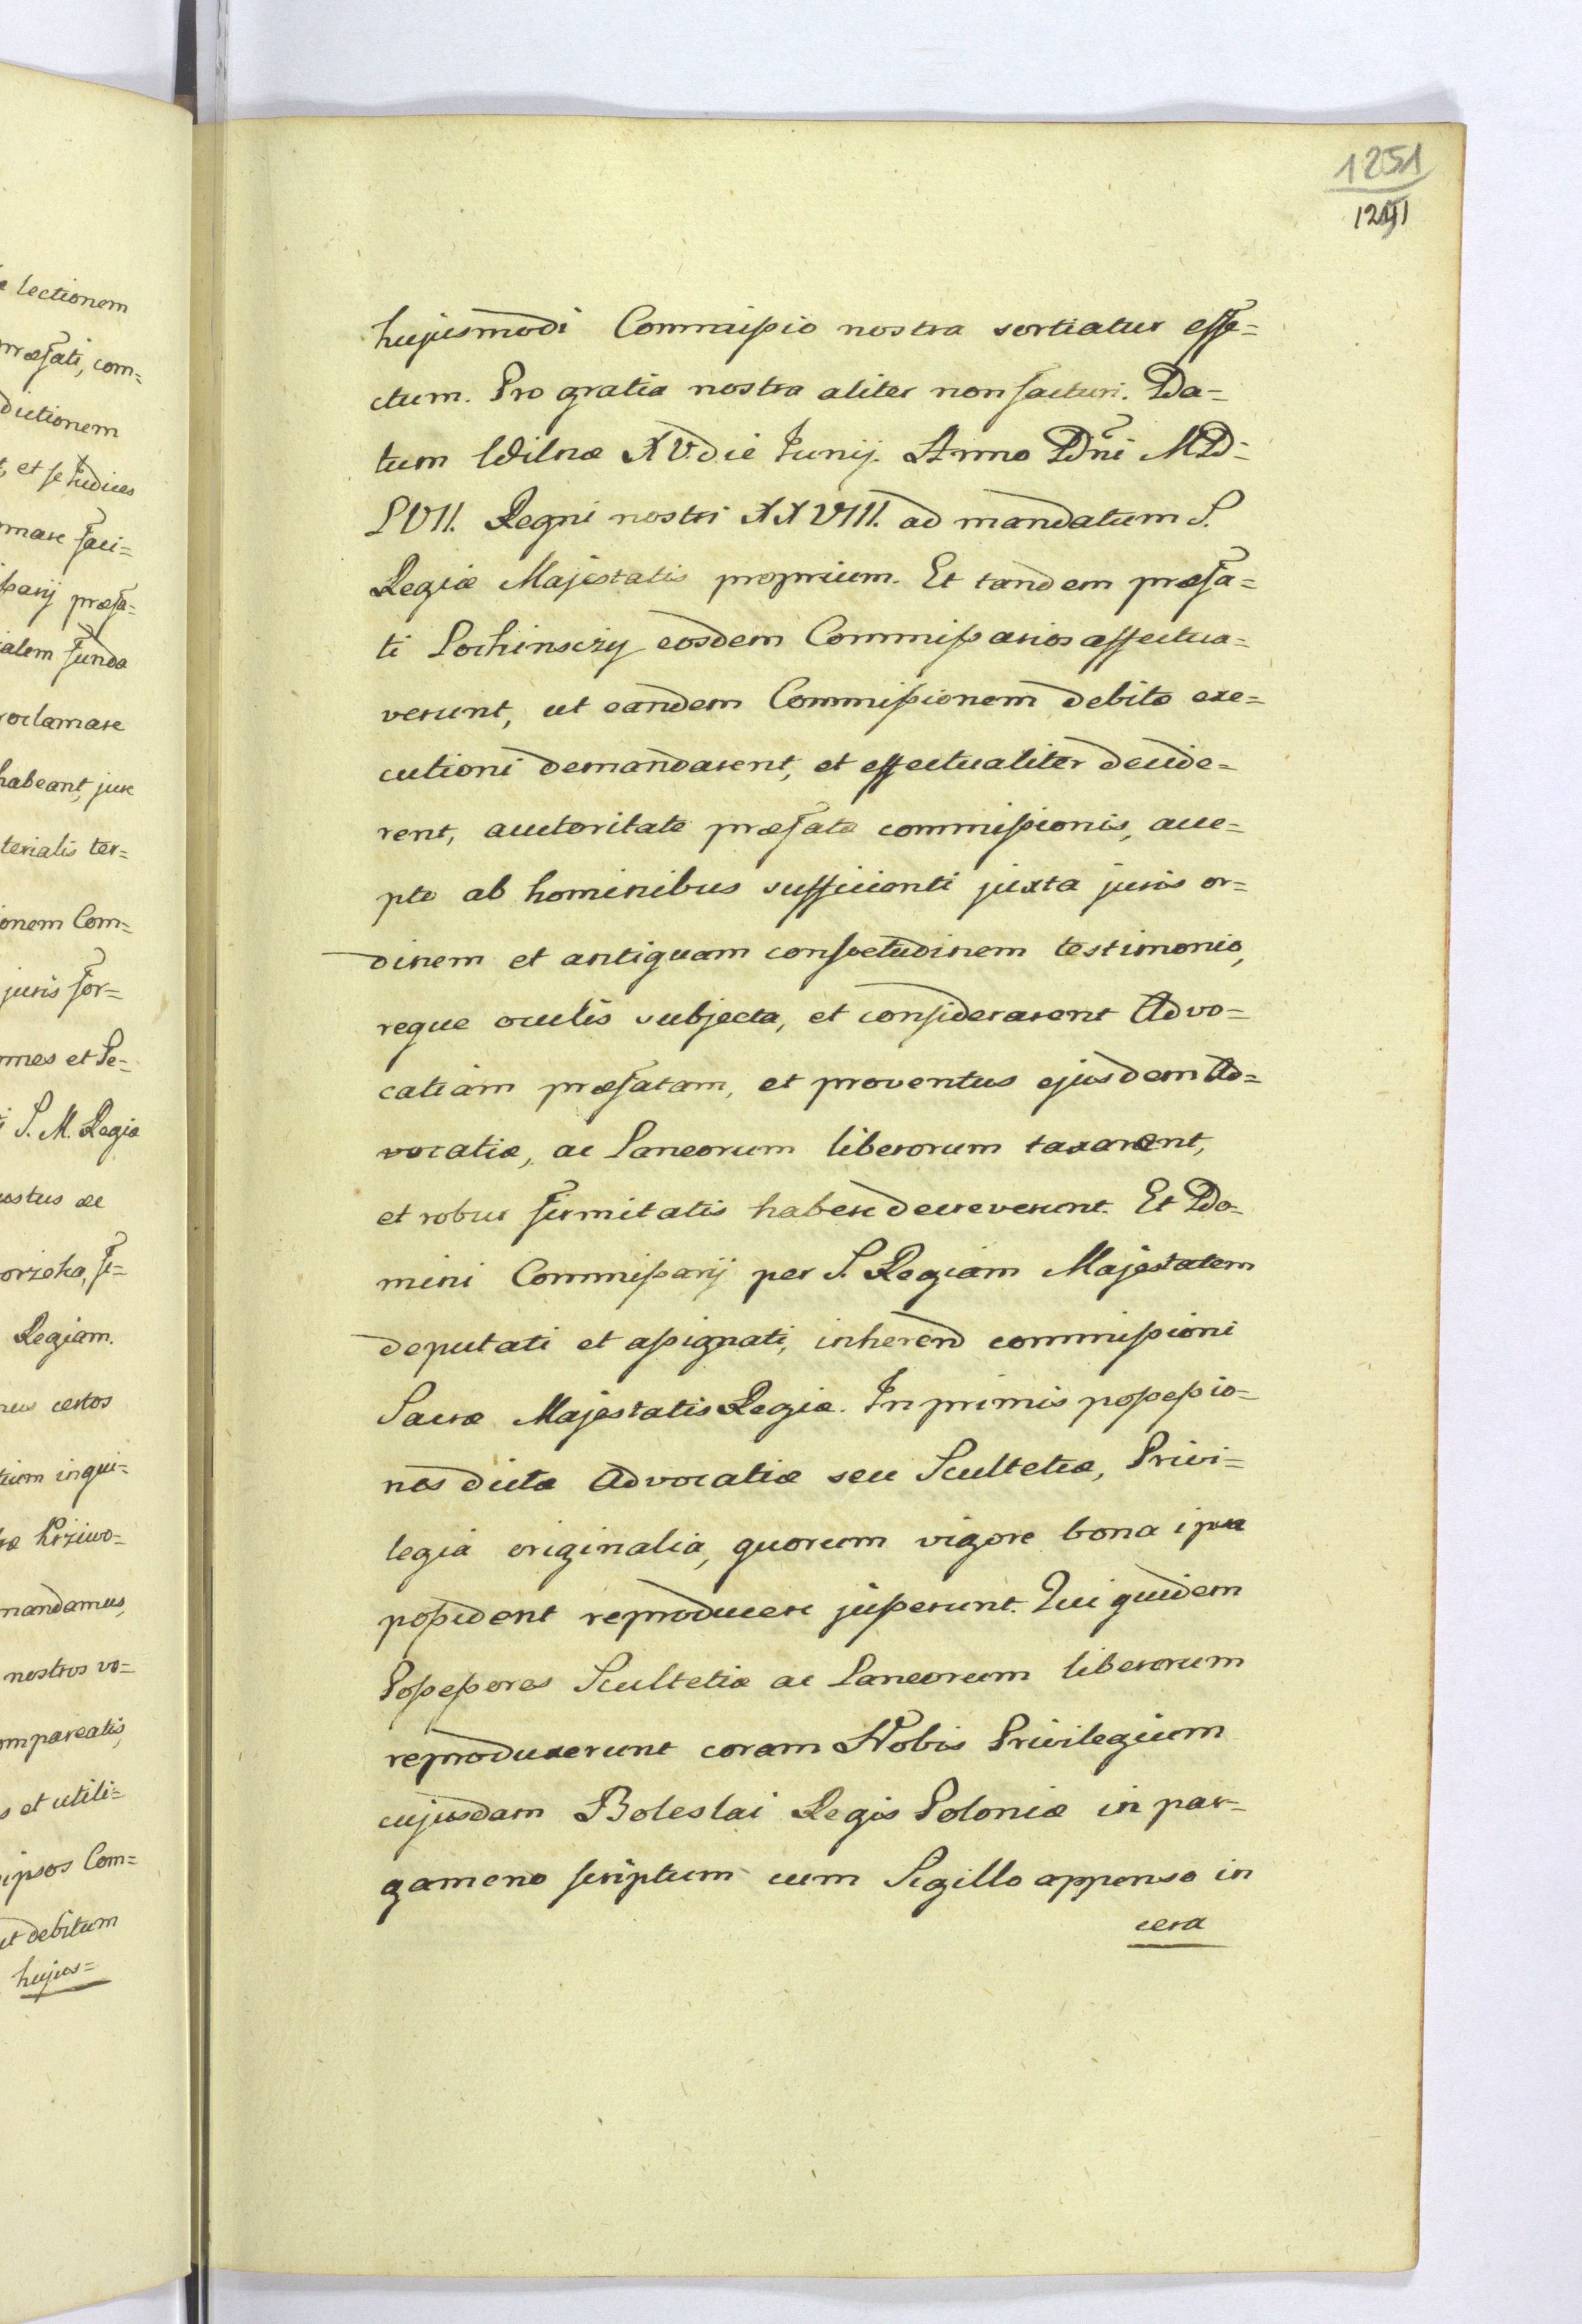 e lectionem
præfati, com=
dictionem
t, et se Judices
mare faci=
ssarij præfa=
ialem funda
roclamare
habeant, jure
terialis ter=
onem Com=
juris for=
mes et Se=
i S. M. Regiæ
ustus ac
orzeka, fi=
Regiam.
certos
inqui=
Krziwo=
mandamus,
nostros vo=
ompareatis,
s et utili=
ipsos Com=
ut debitum
hujus=
1251
1241
hujusmodi Commissio nostra sortiatur effe=
ctum. Pro gratia nostra aliter non facturi. Da=
tum Wilnæ XV. die Junij. Anno Dni MD=
LVII. Regni nostri XXVIII. ad mandatum S.
Regiæ Majestatis proprium. Et tandem præfa=
ti Lochinsczy eosdem Commissarios affectua=
verunt, ut eandem Commissionem debitæ exe=
cutioni demandarent, et effectualiter decide=
rent, auctoritate præfatæ commissionis, acce=
pto ab hominibus sufficienti juxta juris or=
dinem et antiquam consvetudinem testimonio,
reque oculis subjecta, et considerarent Advo=
catiam præfatam, et proventus ejusdem Ad=
vocatiæ, ac Laneorum liberorum taxarent,
et robur firmitatis habere decreverunt. Et Do=
mini Commissarij per S. Regiam Majestatem
deputati et assignati, inherend commissioni
Sacræ Majestatis Regiæ. Inprimis possessio=
nes dictæ Advocatiæ seu Scultetiæ, Privi=
legia originalia, quorum vigore bona ipsa
possident reproducere jusserunt. Qui quidem
Possessores Scultetiæ ac Laneorum liberorum
reproduxerunt coram Nobis Privilegium
cujusdam Boleslai Regis Poloniæ in par=
gameno scriptum cum Sigillo appenso in
cera